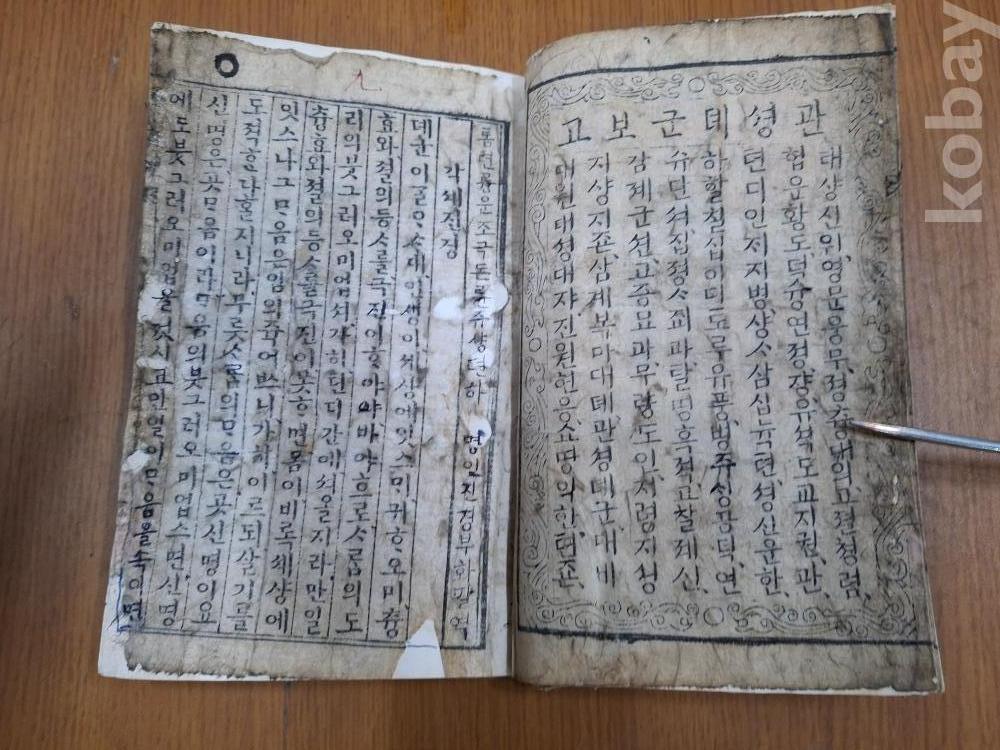 관셩뎨군보고
태샹신위,영문웅무,졍츙대의,고졀쳥렴,
협운황도,덕슝연졍,쟝유셕도교지권,관
텬디인지지병,샹ᄉ삼십뉵텬,셩신운한,
하할칠십이디,토류유풍,병주싱공덕,연
슈단셔,집졍ᄉ죄과탈명흑젹고찰졔신,
감졔군션,고증묘과,무량도인,지령지셩
지샹지죤,삼계복마대뎨관셩뎨군,대비
대원대셩대쟈,진원현응쇼명익한텬죤,
조극돈륜쥬샹뎐하
각셰진경
뎨군이ᄀᆞᆯᄋᆞᄉᆞᄃᆡ,인생이셰상에잇스미,귀ᄒᆞ오미,츙
효와,졀의등ᄉᆞᄅᆞᆯ극진이ᄒᆞ야야,바야흐로ᄉᆞᄅᆞᆷ의도
리의븟그러오미업셔,가히텬디간에셔올지라,만일
츙효와졀의등ᄉᆞᄅᆞᆯ극진이못ᄒᆞ면몸이비로셰샹에
잇스나그ᄆᆞ음은임의쥭어쓰니,가히이로되살기ᄅᆞᆯ
도젹ᄒᆞ다ᄒᆞᆯ지니라,무릇ᄉᆞᄅᆞᆷ의ᄆᆞ음은곳신명이요
신명은곳ᄆᆞ음이라,ᄆᆞ음의븟그러오미업스면,신명
에도븟그러오미업을것시고만일이ᄆᆞ음을속이면
kobay